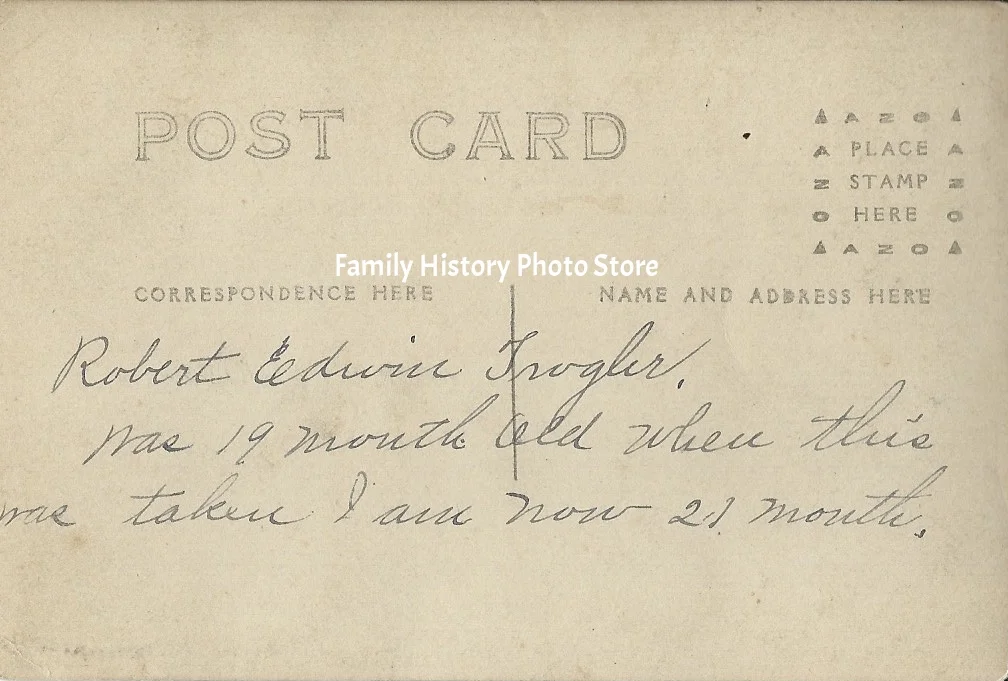 POST CARD
▲ A Z O ▲
A PLACE A
Z STAMP Z
O HERE O
▲ A Z O ▲
Family History Photo Store
CORRESPONDENCE HERE
NAME AND ADDRESS HERE
Robert Edwin Trogler.
was 19 month Old when this
was taken I am now 21 month.